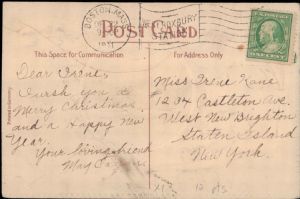 BOSTON, MASS.
1911
W. ROXBURY
STA.
POST CARD
This Space for Communication
For Address Only
Dear Irene,
I wish you a
Merry Christmas
and a Happy New
Year.
Your loving friend
May
Miss Irene Kane
1234 Castleton Ave.
West New Brighton
Staten Island
New York.
Printed in Germany